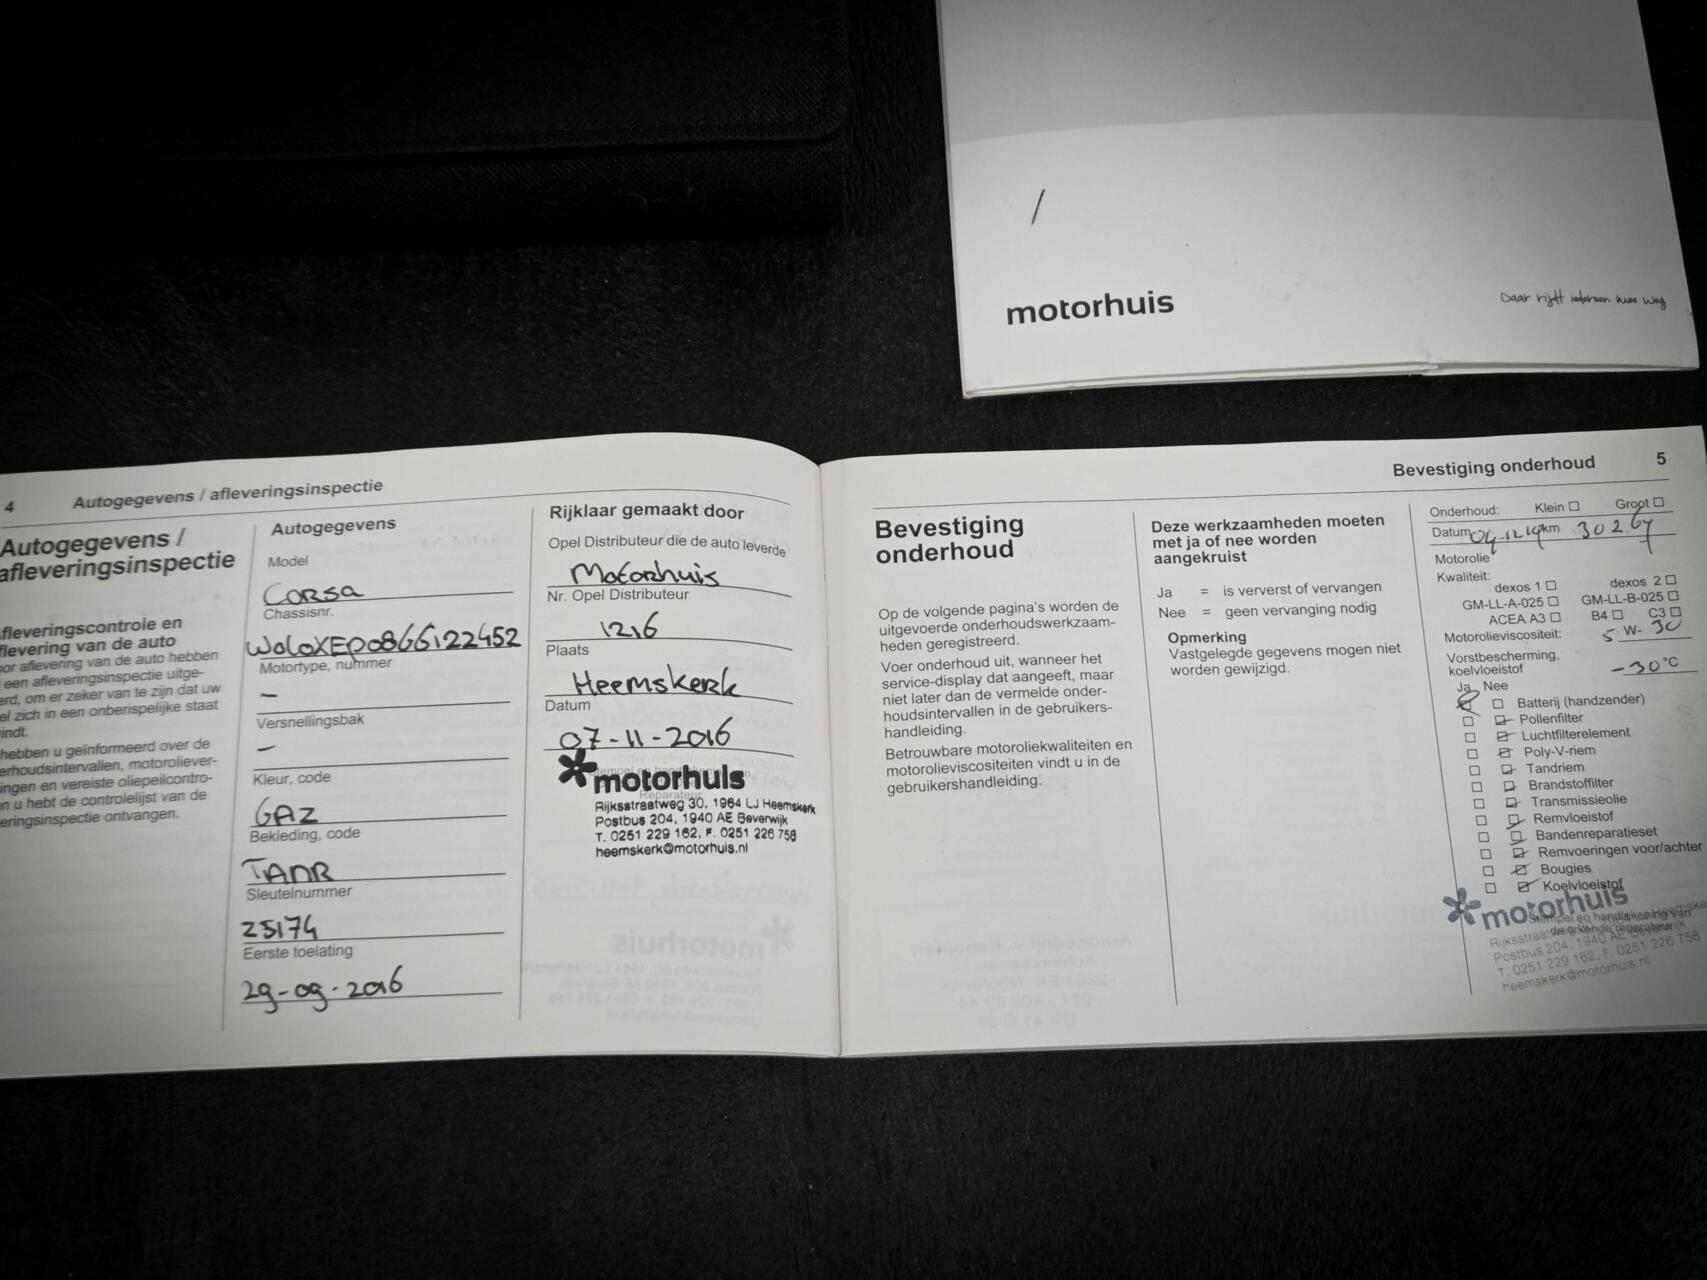 motorhuis
Daar rijdt iedereen mee weg
4 Autogegevens / afleveringsinspectie
Autogegevens /
afleveringsinspectie
fleveringscontrole en
flevering van de auto
or aflevering van de auto hebben
een afleveringsinspectie uitge-
erd, om er zeker van te zijn dat uw
el zich in een onberispelijke staat
indt.
hebben u geïnformeerd over de
erhoudsintervallen, motoroliever-
ingen en vereiste oliepeilcontro-
n u hebt de controlelijst van de
eringsinspectie ontvangen.
Autogegevens
Model
Corsa
Chassisnr.
WoLoXEP0866122452
Motortype, nummer
–
Versnellingsbak
–
Kleur, code
GAZ
Bekleding, code
TANR
Sleutelnummer
25174
Eerste toelating
29-09-2016
Rijklaar gemaakt door
Opel Distributeur die de auto leverde
Motorhuis
Nr. Opel Distributeur
1216
Plaats
Heemskerk
Datum
07-11-2016
motorhuis
Rijksstraatweg 30, 1964 LJ Heemskerk
Postbus 204, 1940 AE Beverwijk
T. 0251 229 162, F. 0251 226 758
heemskerk@motorhuis.nl
Bevestiging onderhoud 5
Bevestiging
onderhoud
Op de volgende pagina's worden de
uitgevoerde onderhoudswerkzaam-
heden geregistreerd.
Voer onderhoud uit, wanneer het
service-display dat aangeeft, maar
niet later dan de vermelde onder-
houdsintervallen in de gebruikers-
handleiding.
Betrouwbare motoroliekwaliteiten en
motorolieviscositeiten vindt u in de
gebruikershandleiding.
Deze werkzaamheden moeten
met ja of nee worden
aangekruist
Ja = is ververst of vervangen
Nee = geen vervanging nodig
Opmerking
Vastgelegde gegevens mogen niet
worden gewijzigd.
Onderhoud: Klein Groot
Datum 04-12-19 km 30267
Motorolie
Kwaliteit:
dexos 1 dexos 2
GM-LL-A-025 GM-LL-B-025
ACEA A3 B4 C3
Motorolieviscositeit: 5 W-30
Vorstbescherming,
koelvloeistof -30 °C
Ja Nee
Batterij (handzender)
Pollenfilter
Luchtfilterelement
Poly-V-riem
Tandriem
Brandstoffilter
Transmissieolie
Remvloeistof
Bandenreparatieset
Remvoeringen voor/achter
Bougies
Koelvloeistof
motorhuis
Stempel en handtekening van
Rijksstraatweg
Postbus 204, 1940 AE Beverwijk
T. 0251 229 162, F. 0251 226 758
heemskerk@motorhuis.nl